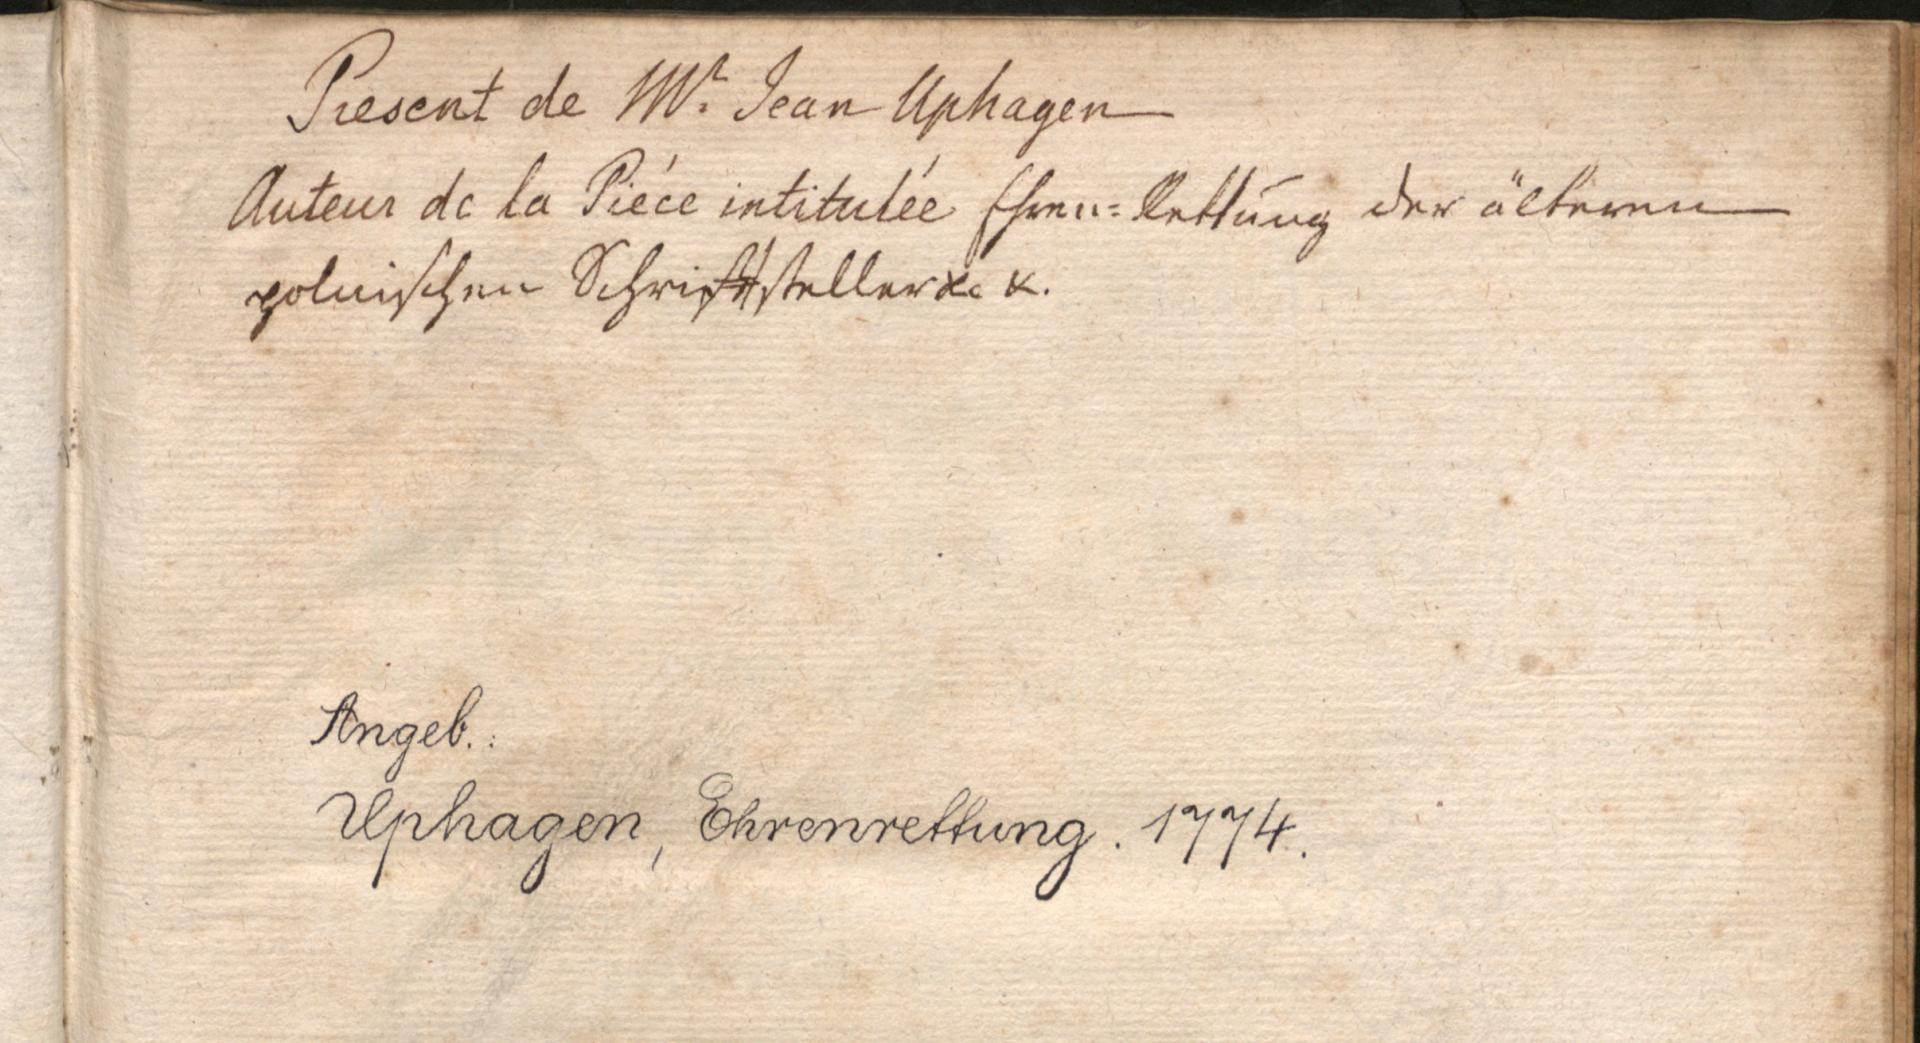 Present de Mr. Jean Uphagen
Auteur de la Piéce intitulée Ehren=Rettung der älteren
polnischen Schriftsteller &c &.
Angeb.:
Uphagen, Ehrenrettung. 1774.